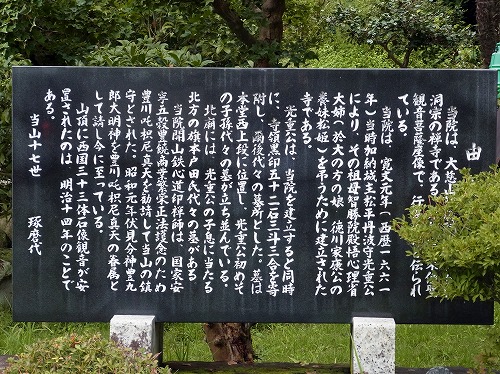 由
当院は、大慈山
洞宗の禅寺である
観音菩薩座像で、行
ている。
当院は、寛文元年(西歴一六六一
年)当時加納城主松平丹波守光重公
により、その祖母智勝院殿悟心理省
大姉(於大の方の娘、徳川家康公の
養妹松姫)を弔うために建立された
寺である。
光重公は、当院を建立すると同時
に、寺領黒印五十二石三斗三合を寄
附し、爾後代々の墓所とした。墓は
本堂裏山上段に位置し、光重公初めそ
の子孫代々の墓が立ち並んでいる。
北廟には、光重公の子息に当たる
北方の旗本戸田氏代々の墓がある
当院開山鉄心道印禅師は、国家安
寧五穀豊饒商業繁栄正法護持のため
豊川吒枳尼真天を勧請して当山の鎮
守とされた。昭和元年伏見今神豊丸
郎大明神を豊川吒枳尼真天の眷属と
して請し今に至っている。
山頂に西国三十三体石佛観音が安
置されたのは、明治十四年のことで
ある。
当山十七世 琢磨代